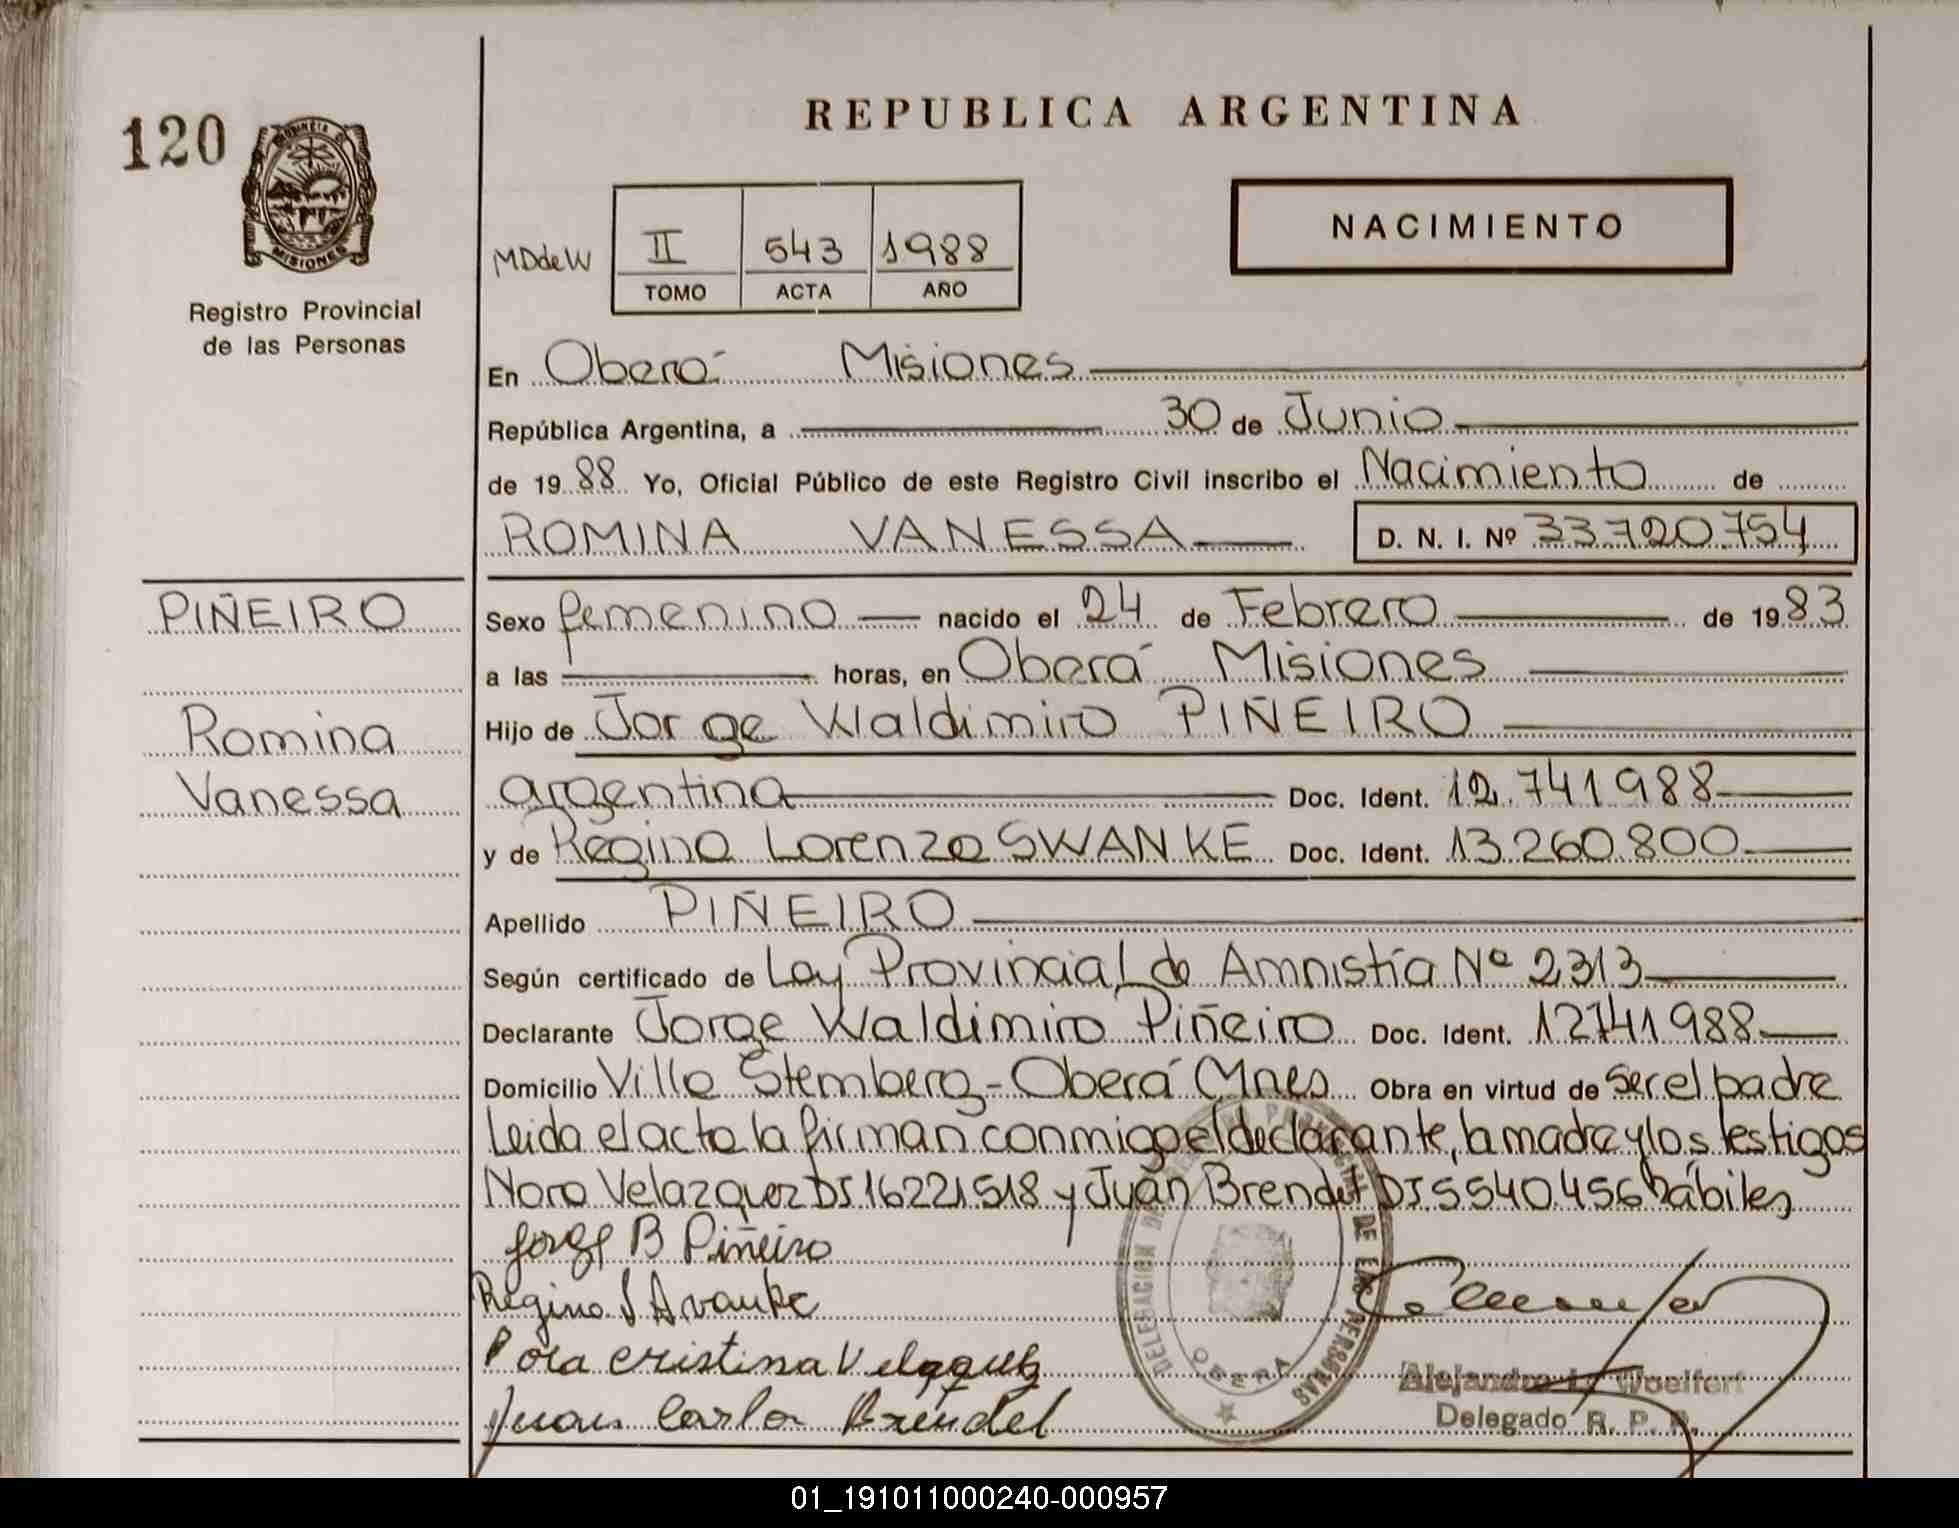 120
PROVINCIA DE
MISIONES
Registro Provincial
de las Personas
REPUBLICA ARGENTINA
NACIMIENTO
MDdeW
II 543 1988
TOMO ACTA AÑO
En Oberá Misiones
República Argentina, a 30 de Junio
de 1988 Yo, Oficial Público de este Registro Civil inscribo el Nacimiento de
ROMINA VANESSA D. N. I. Nº 33.720.754
PIÑEIRO
Romina
Vanessa
Sexo femenino nacido el 24 de Febrero de 1983
a las horas, en Oberá Misiones
Hijo de Jorge Waldimiro PIÑEIRO
argentina Doc. Ident. 12.741988
y de Regina Lorenza SWANKE Doc. Ident. 13.260.800
Apellido PIÑEIRO
Según certificado de Ley Provincial de Amnistía Nº 2313
Declarante Jorge Waldimiro Piñeiro Doc. Ident. 12741988
Domicilio Villa Stemberg - Oberá Mnes Obra en virtud de ser el padre
Leida el acta la firman conmigo el declarante, la madre y los testigos
Nora Velazquez DI 16221518 y Juan Brendel DI 5540.456 hábiles
Jorge B Piñeiro
Regina
Cristina Velazquez
Juan Carlos Brendel
DELEGACION DE LAS PERSONAS
OBERA
Alejandro L. Woelfert
Delegado R. P. P.
01_191011000240-000957